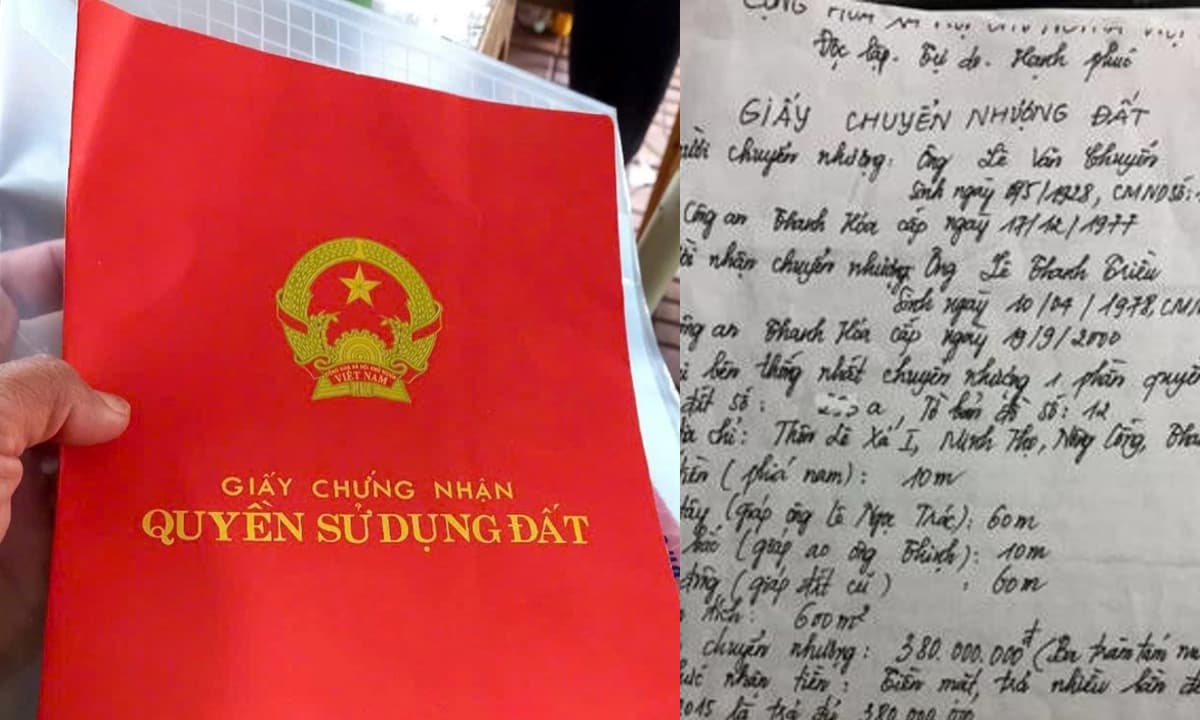 VIỆT NAM
GIẤY CHỨNG NHẬN
QUYỀN SỬ DỤNG ĐẤT
Độc lập. Tự do. Hạnh phúc
GIẤY CHUYỂN NHƯỢNG ĐẤT
chuyển nhượng: Ông Lê Văn Chuyến
Sinh ngày /1928, CMND Số:
Công an Thanh Hóa cấp ngày 17/12/1977
nhận chuyển nhượng Ông Lê Thanh Triều
Sinh ngày 10/04/1978, CM
an Thanh Hóa cấp ngày 19/9/2000
bên thống nhất chuyển nhượng 1 phần quyền
đất số: a, Tờ bản đồ số: 12
chỉ: Thôn Lê Xá I, Minh Thọ, Nông Cống, Tha
(phía nam): 10m
(giáp ông Lê Ngọc Trác): 60m
bắc (giáp ao ông Thịnh): 10m
(giáp đất cũ) : 60m
tích: 600m²
chuyển nhượng: 380.000.000đ (Ba trăm tám m
nhận tiền: Tiền mặt, trả nhiều lần
2015 là trả đủ 380.000.000